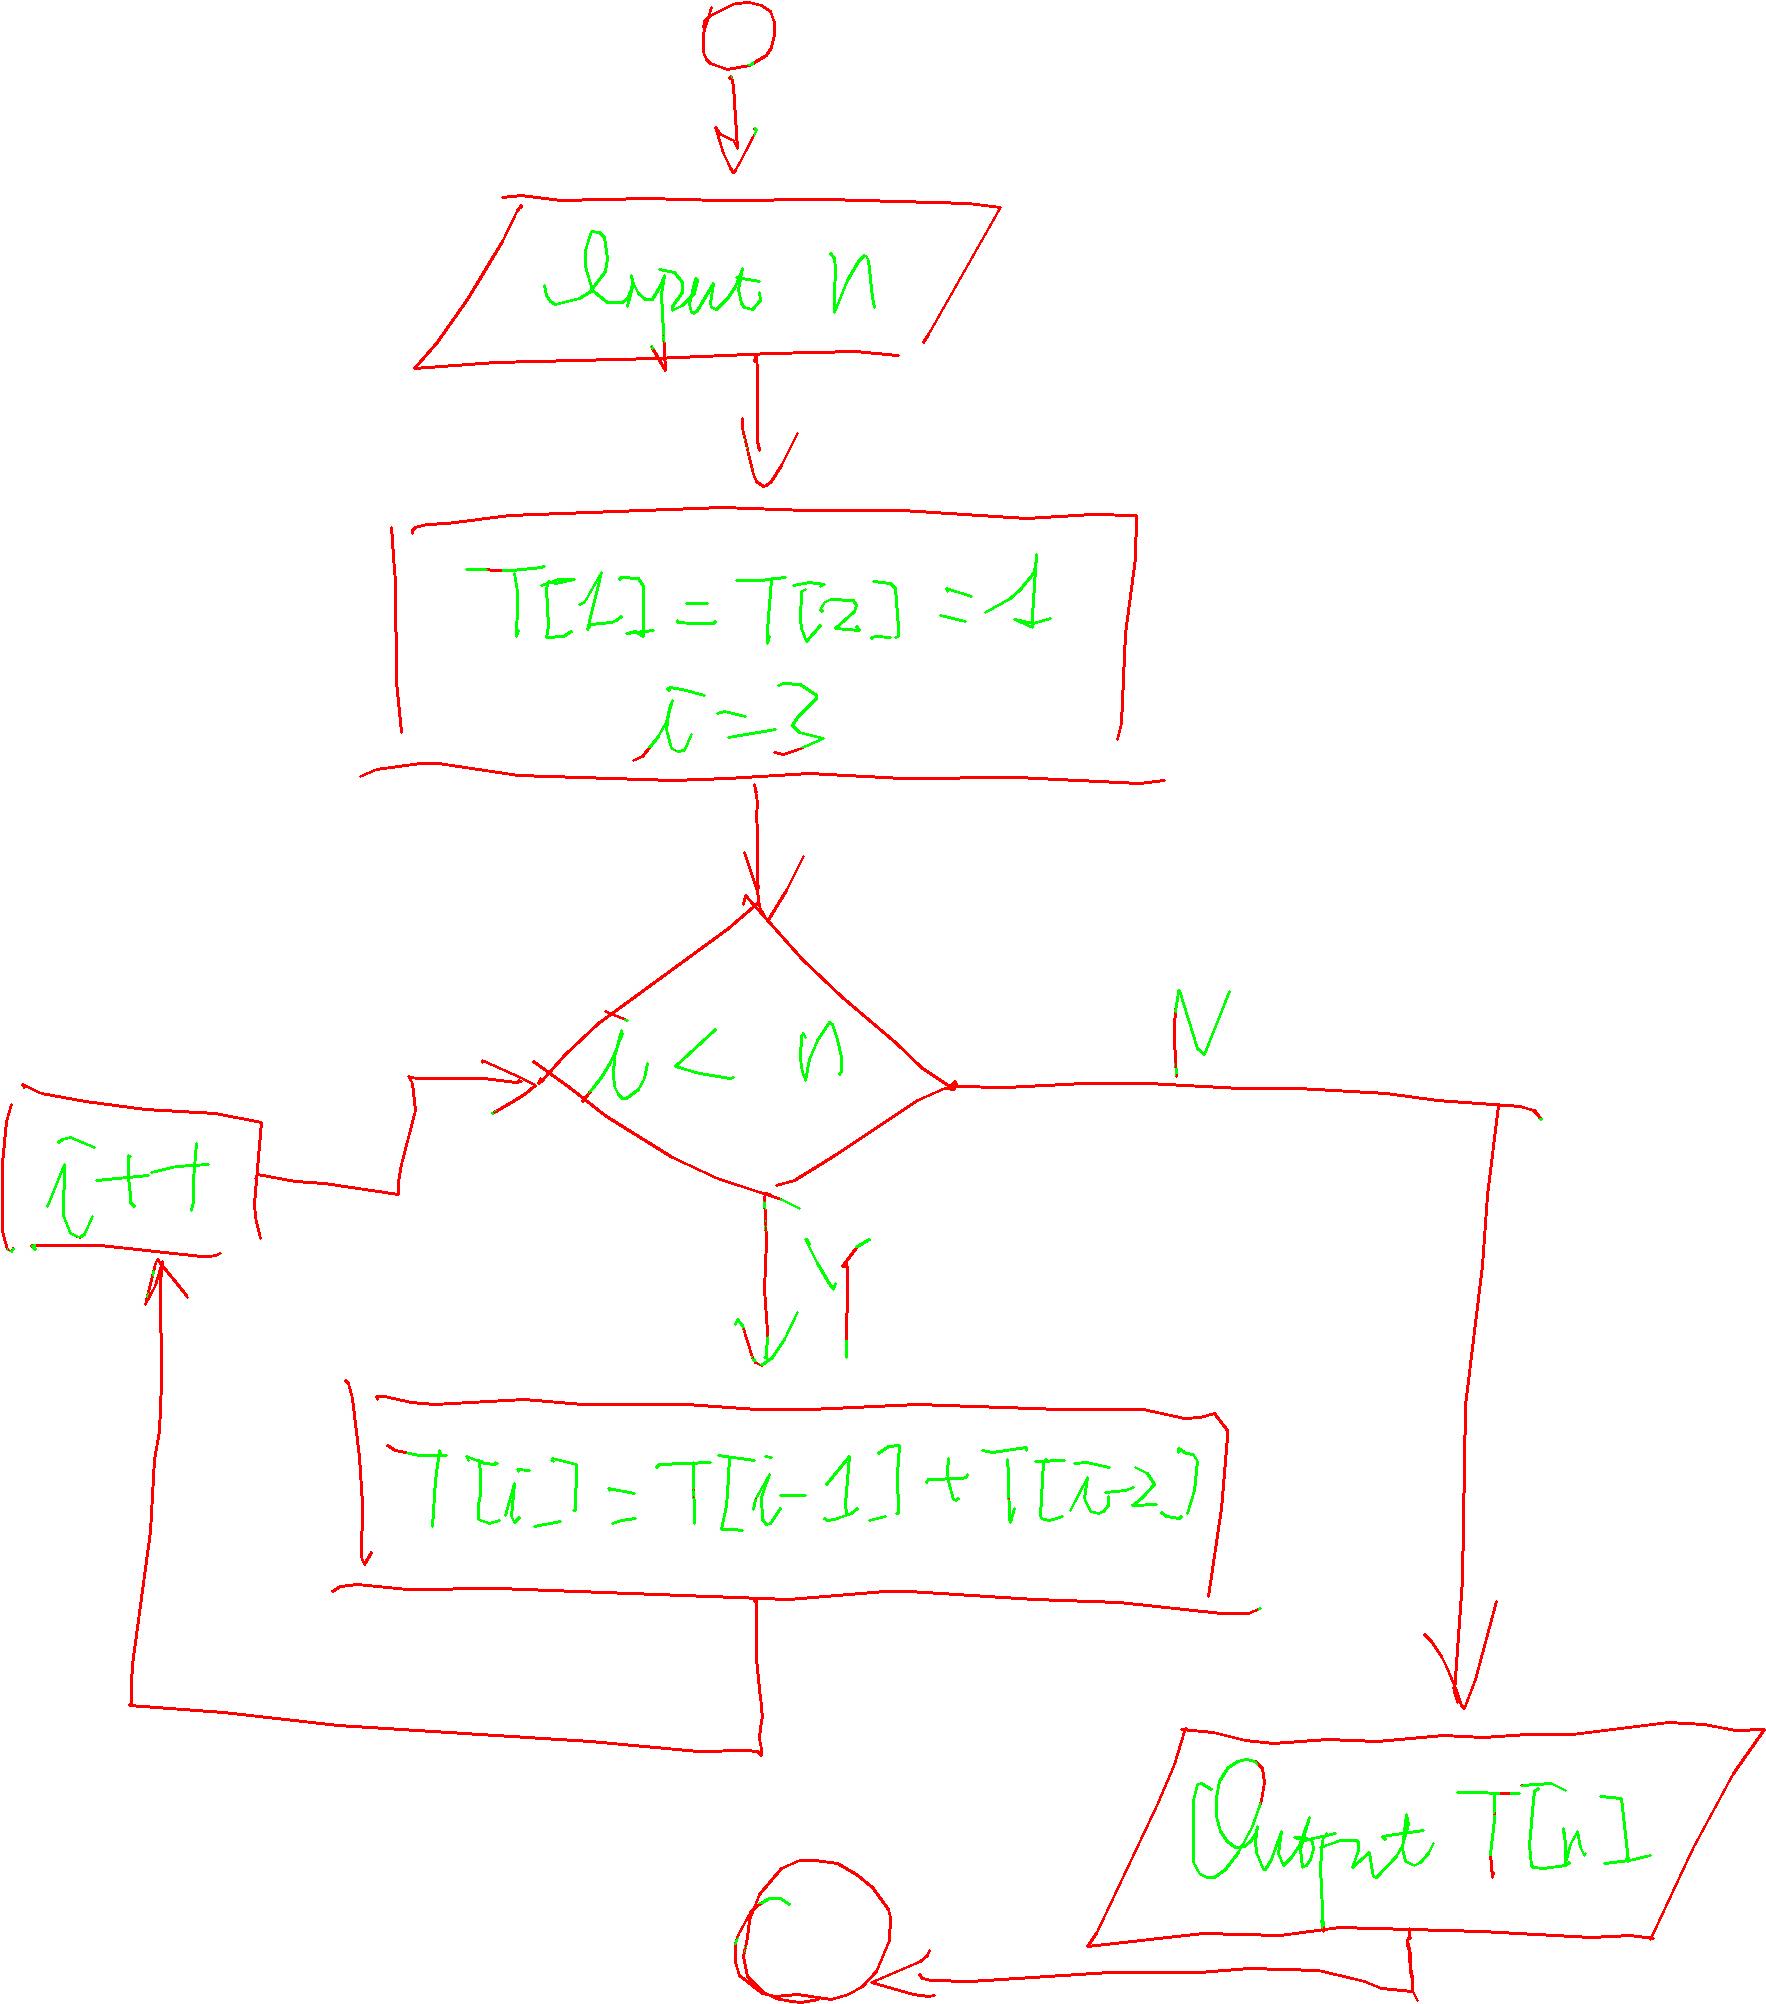 Input n
T[1] = T[2] = 1
i = 3
i < n
N
i++
Y
T[i] = T[i-1] + T[i-2]
Output T[n]